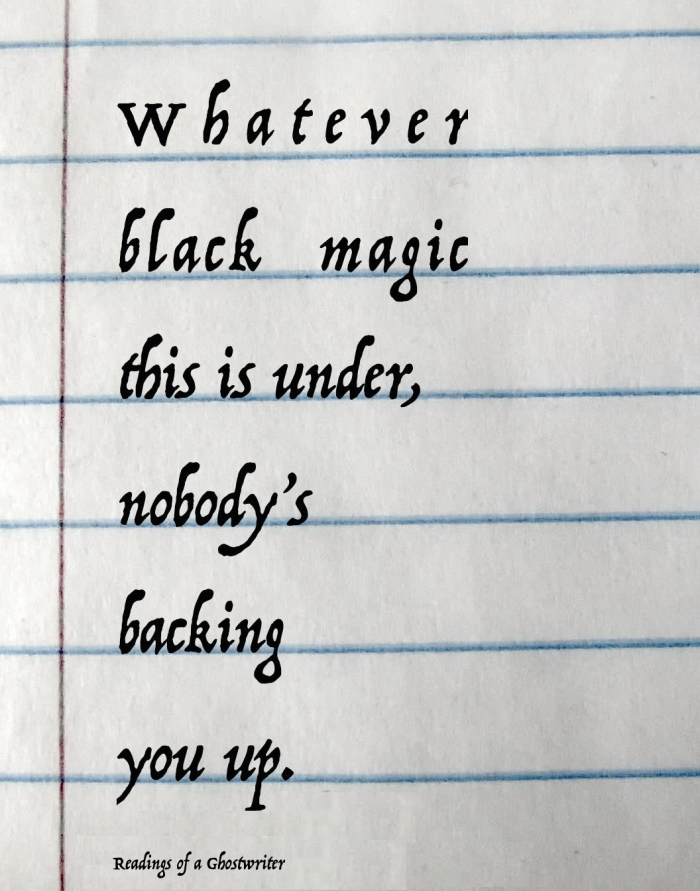 Whatever
black magic
this is under,
nobody's
backing
you up.
Readings of a Ghostwriter